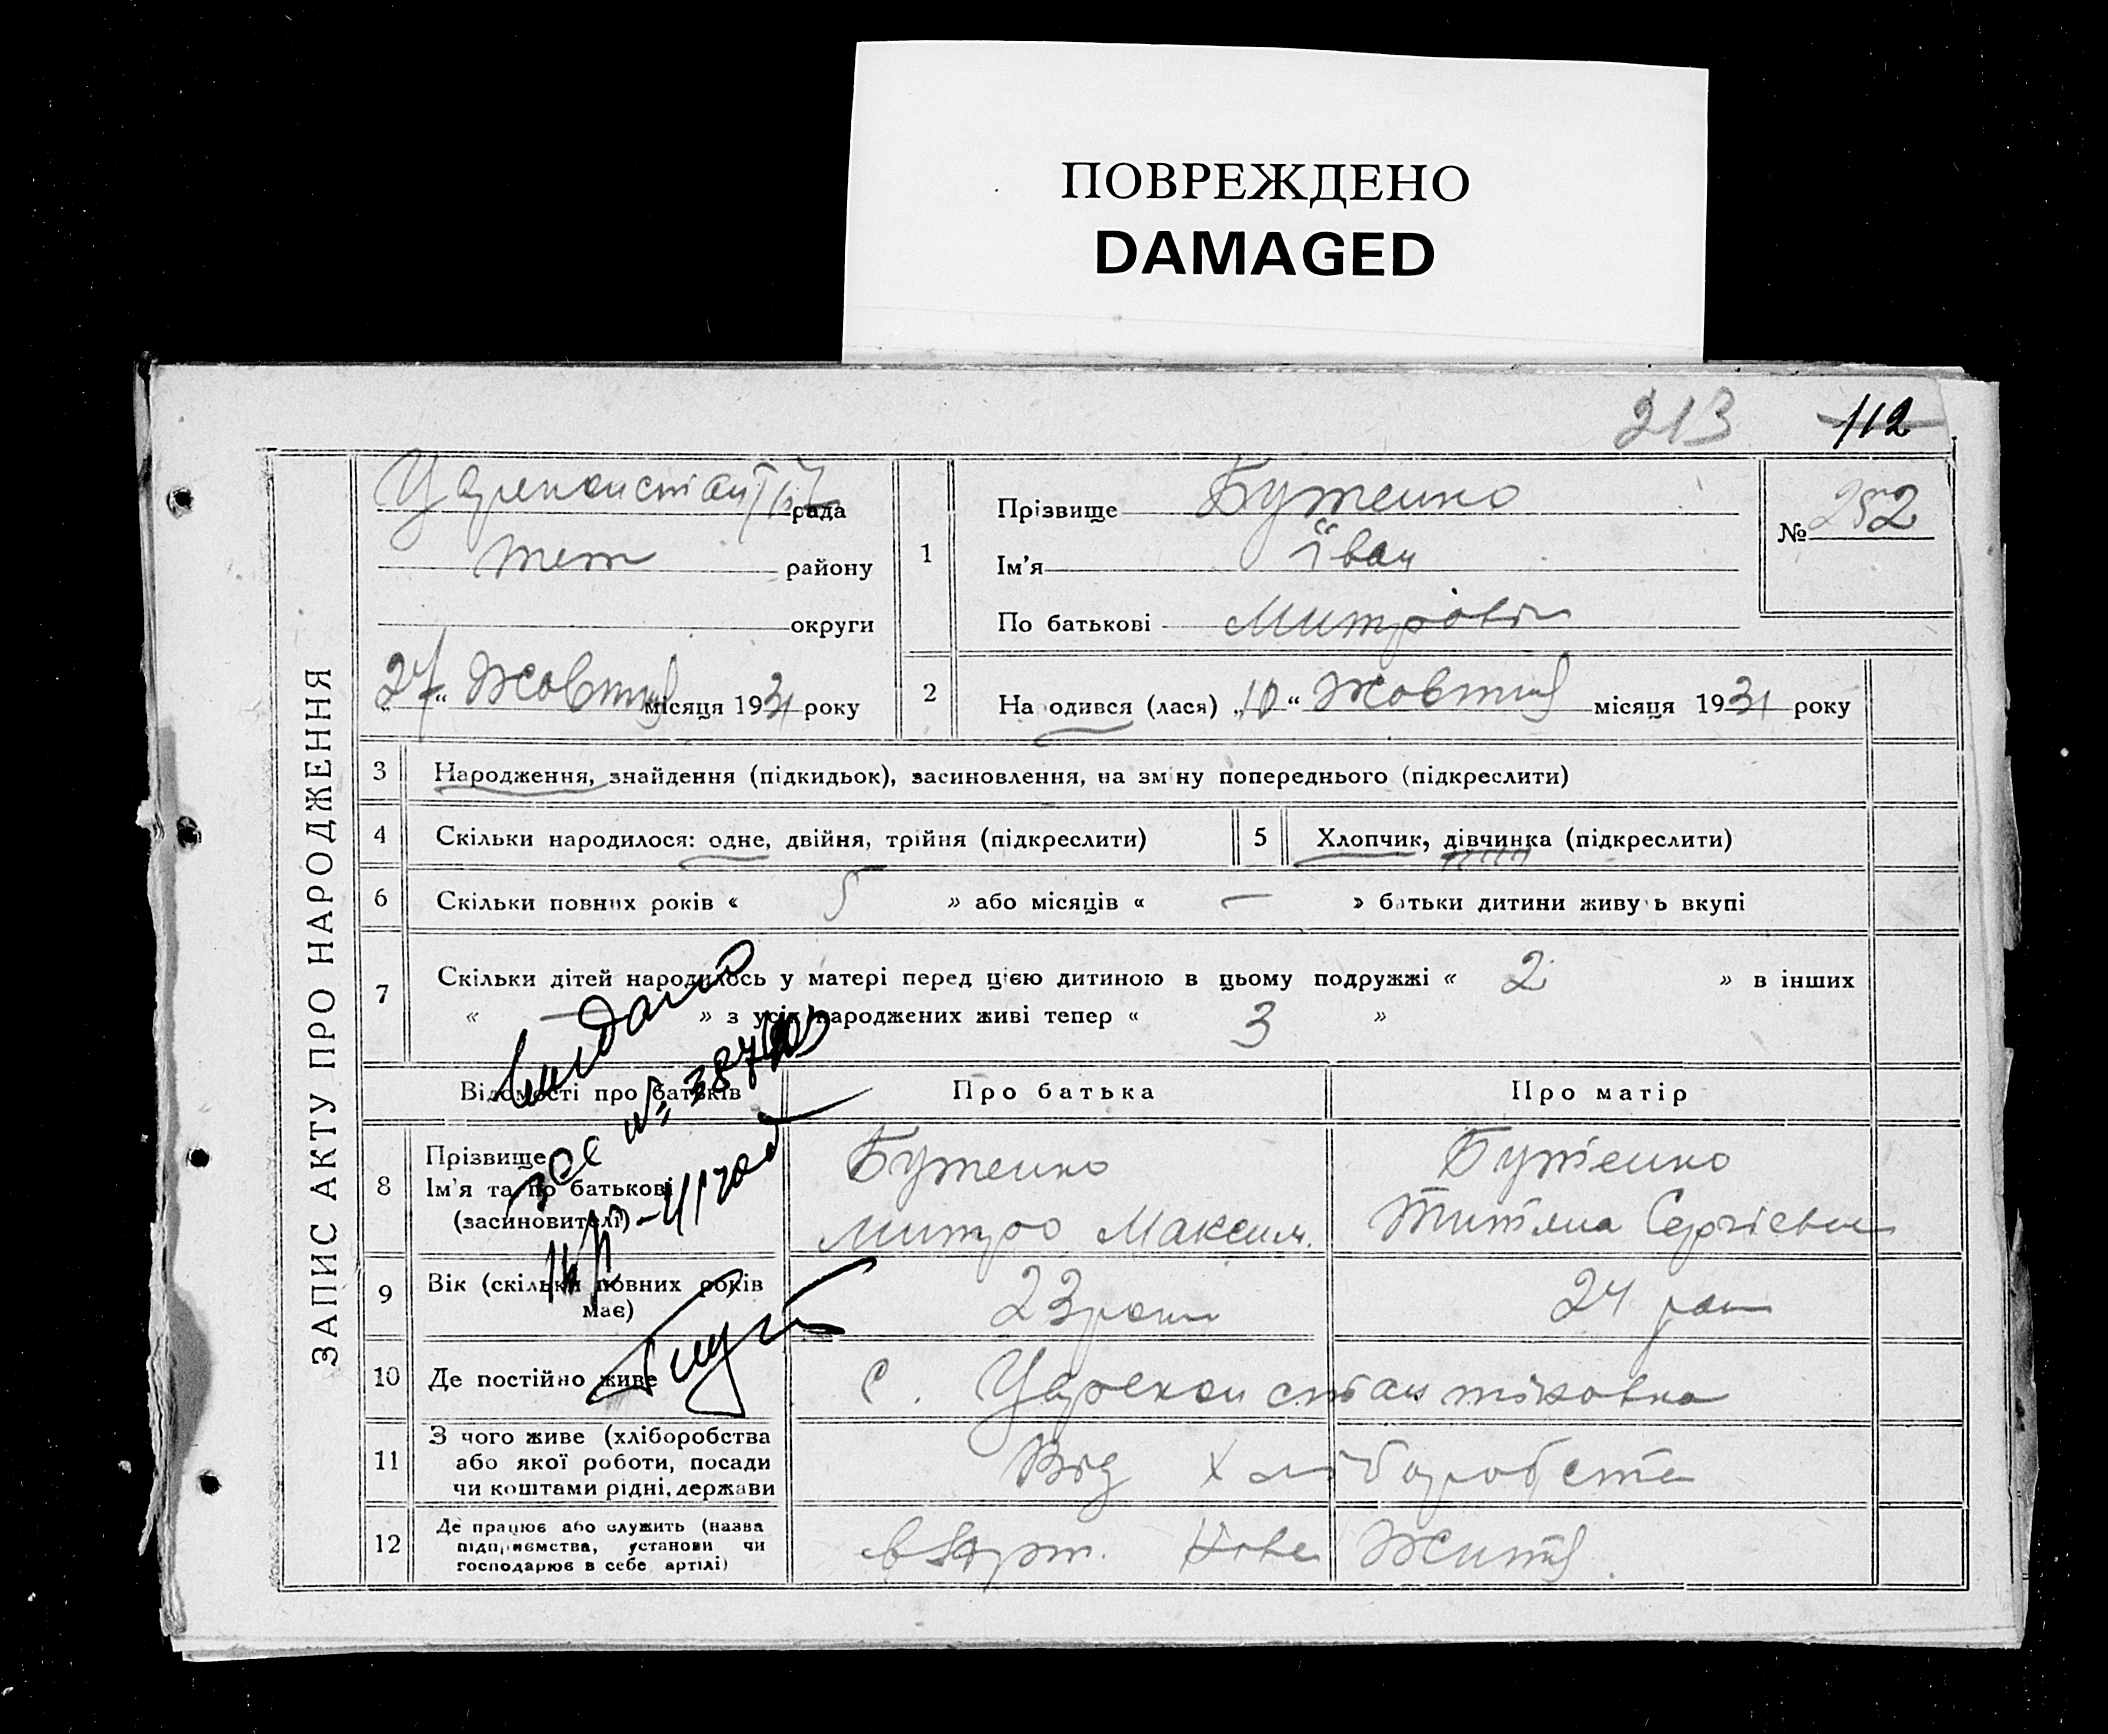 ПОВРЕЖДЕНО
DAMAGED
213 112
ЗАПИС АКТУ ПРО НАРОДЖЕННЯ
рада
тет району
округи
"27" Жовтня місяця 1931 року
1
Прізвище Бутенко
Ім'я Іван
По батькові Митрові
№ 252
2
На одився (лася) "10" Жовтня місяця 1931 року
3 Народження, знайдення (підкидьок), засиновлення, на зміну попереднього (підкреслити)
4 Скільки народилося: одне, двійня, трійня (підкреслити)
5 Хлопчик, дівчинка (підкреслити)
6 Скільки повних років « 5 » або місяців « — » батьки дитини живу ь вкупі
7 Скільки дітей народилось у матері перед цією дитиною в цьому подружжі « 2 » в інших
« — » з усіх народжених живі тепер « 3 »
Видано
Відомості про батьків
Про батька
Про матір
8 Прізвище
Ім'я та по батькові
(засиновителі)
Бутенко
Митро Максим.
Бутенко
Титяна Сергієвна
9 Вік (скільки повних років
має)
23 роки
24 роки
10 Де постійно живе
с. Цареконстантіновка
11 З чого живе (хліборобства
або якої роботи, посади
чи коштами рідні, держави
Від хліборобств
12 Де працює або служить (назва
підприємства, установи чи
господарює в себе артілі)
в Арт. Нове Життя